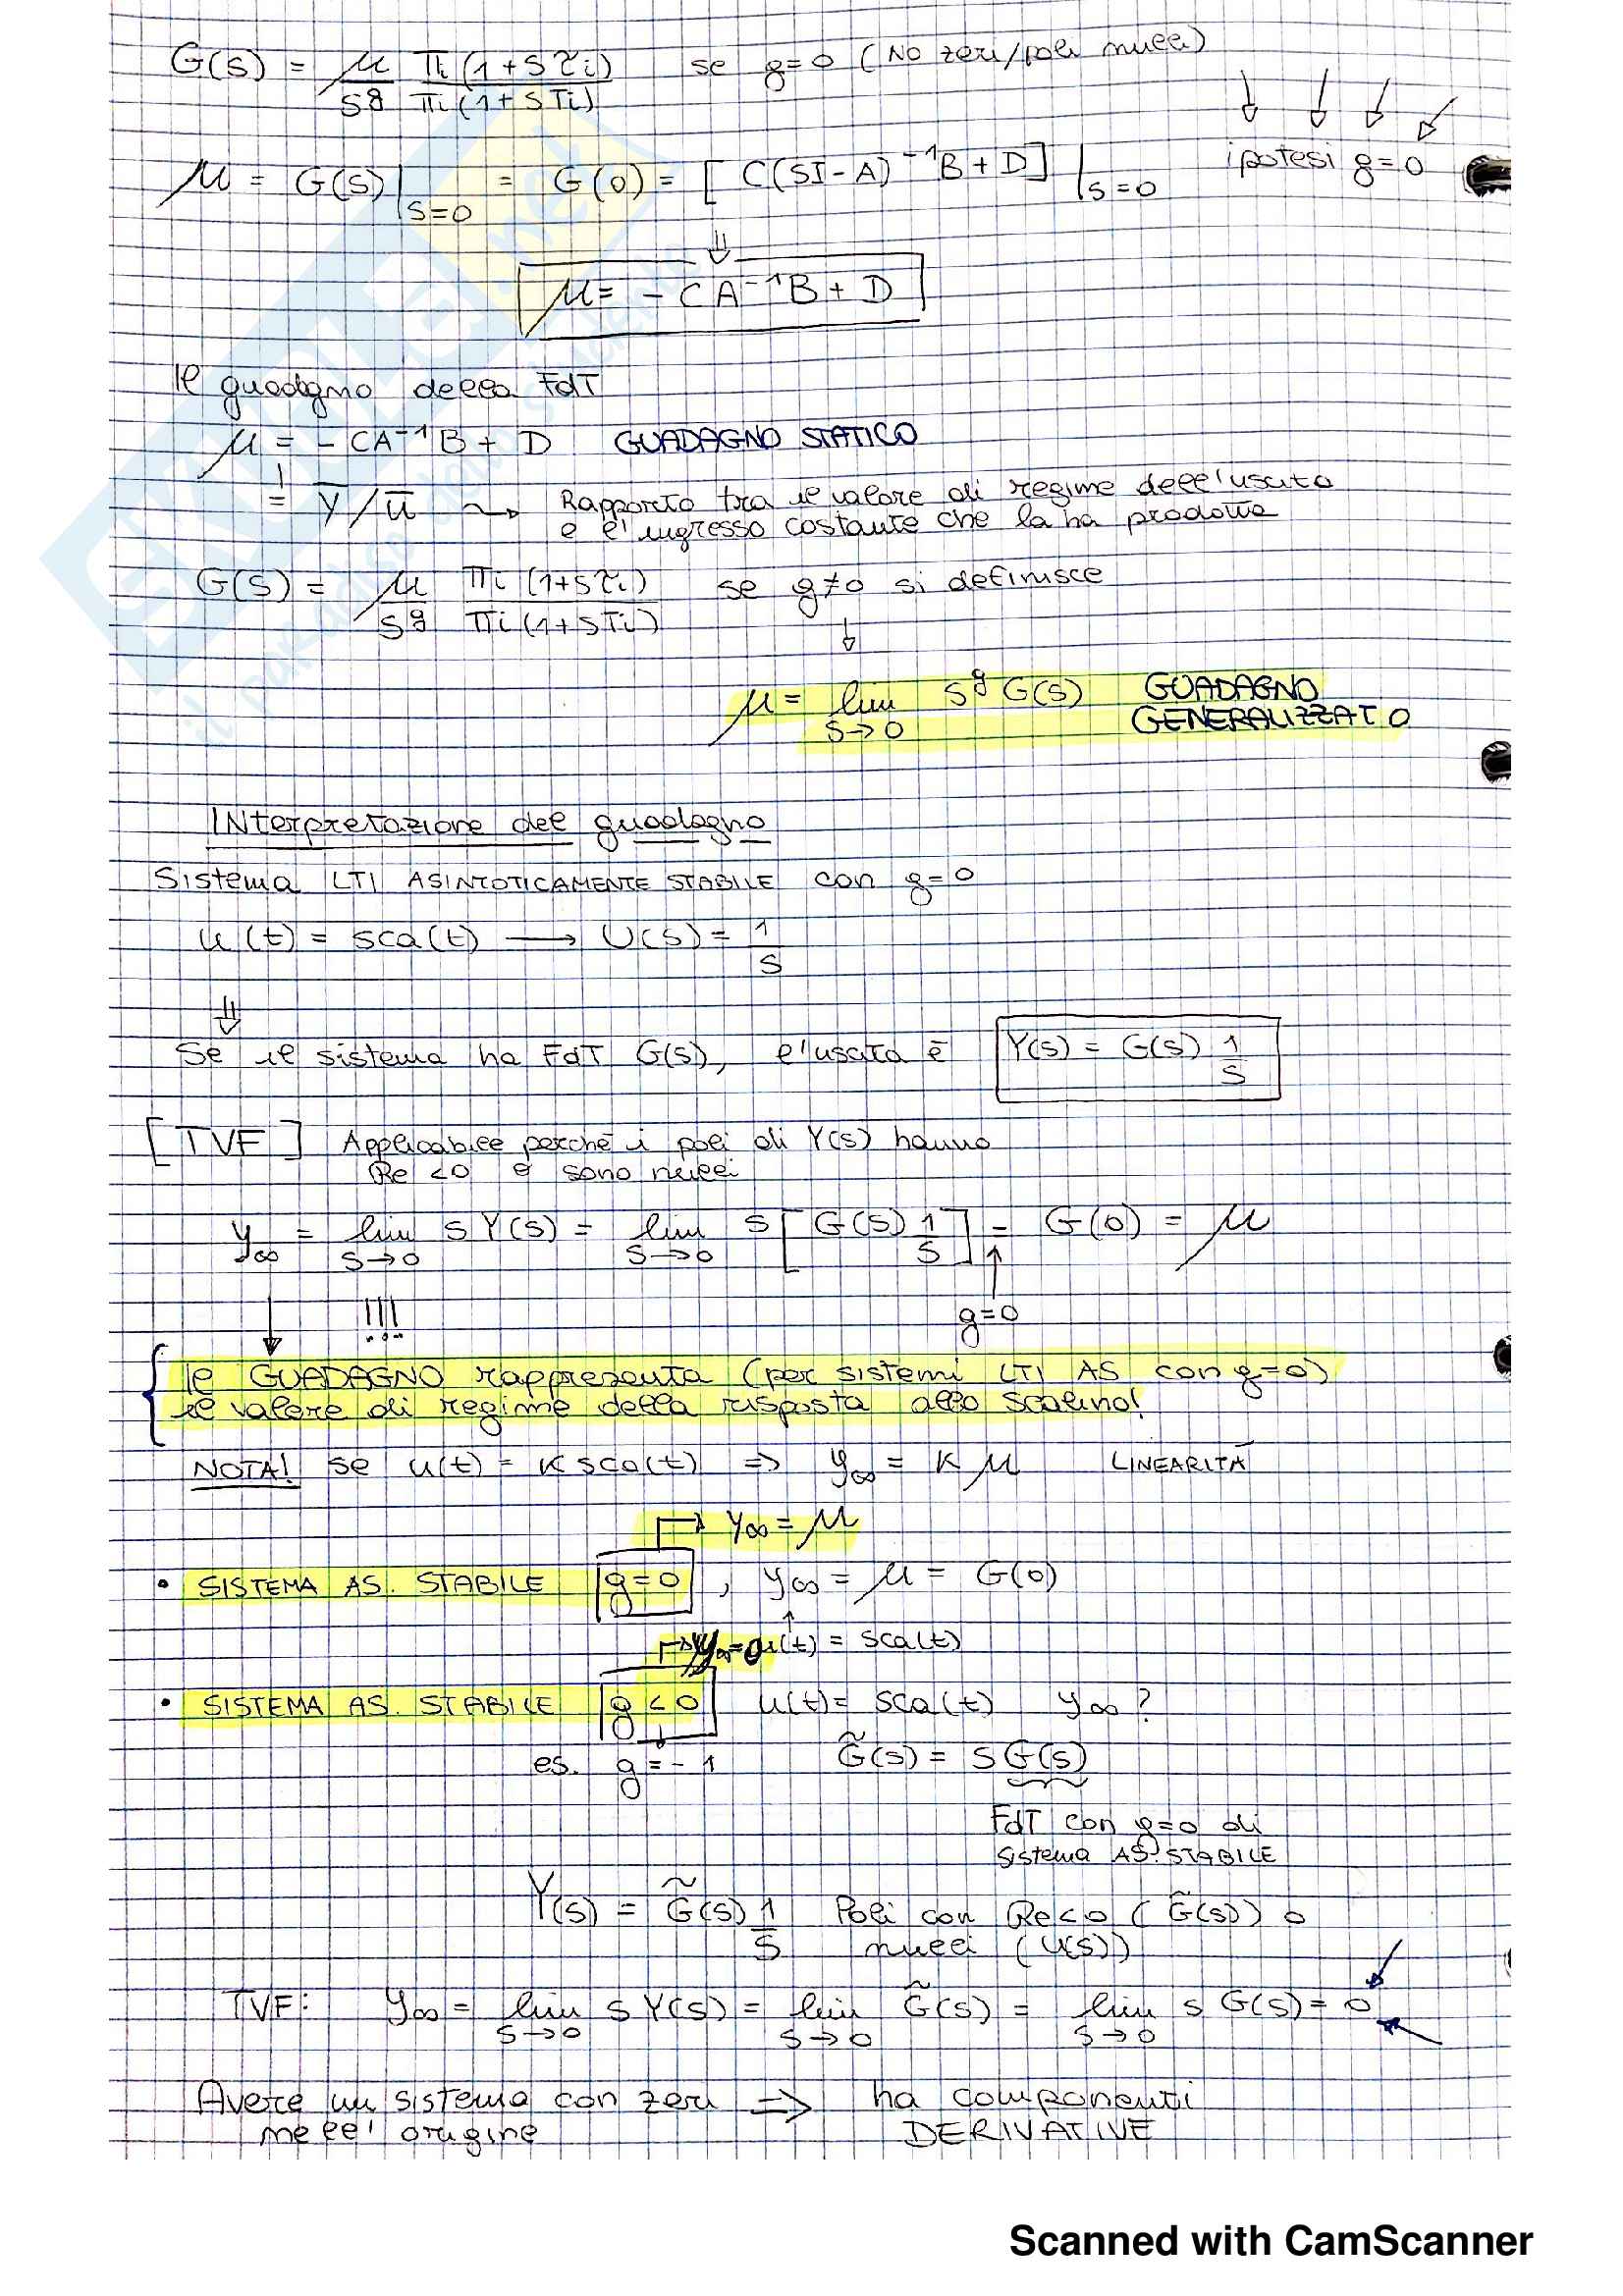 G(s) = μ/s^g Πi(1+sτi)/Πi(1+sTi) se g=0 (No zeri/poli nulli)
μ = G(s)|s=0 = G(0) = [C(sI-A)⁻¹B+D]|s=0 ipotesi g=0
⇓
μ = - CA⁻¹B + D
Il guadagno della FdT
μ = - CA⁻¹B + D GUADAGNO STATICO
= Ȳ/ū ⇝ Rapporto tra il valore di regime dell'uscita
e l'ingresso costante che la ha prodotta
G(s) = μ/s^g Πi(1+sτi)/Πi(1+sTi) se g≠0 si definisce
↓
μ = lim s→0 s^g G(s) GUADAGNO
GENERALIZZATO
INterpretazione del guadagno
Sistema LTI ASINTOTICAMENTE STABILE con g=0
u(t) = sca(t) → U(s) = 1/s
⇓
Se il sistema ha FdT G(s), l'uscita è Y(s) = G(s) 1/s
[TVF] Applicabile perché i poli di Y(s) hanno
Re <0 o sono nulli
y∞ = lim s→0 sY(s) = lim s→0 s[G(s) 1/s] = G(0) = μ
↑
g=0
!!!
Il GUADAGNO rappresenta (per sistemi LTI AS con g=0)
il valore di regime della risposta allo scalino!
NOTA! se u(t) = K sca(t) => y∞ = K μ LINEARITÀ
→ y∞ = μ
• SISTEMA AS. STABILE g=0 , y∞ = μ = G(0)
↑
→ y∞=0 u(t) = sca(t)
• SISTEMA AS. STABILE g<0 u(t) = sca(t) y∞?
es. g=-1 G̃(s) = sG(s)
FdT con g=0 di
sistema AS. STABILE
Y(s) = G̃(s) 1/s Poli con Re<0 (G̃(s)) o
nulli (U(s))
TVF: y∞ = lim s→0 sY(s) = lim s→0 G̃(s) = lim s→0 s G(s) = 0
Avere un sistema con zeri => ha componenti
nell'origine DERIVATIVE
SKUOLA.net
il paradiso dello studente
Scanned with CamScanner